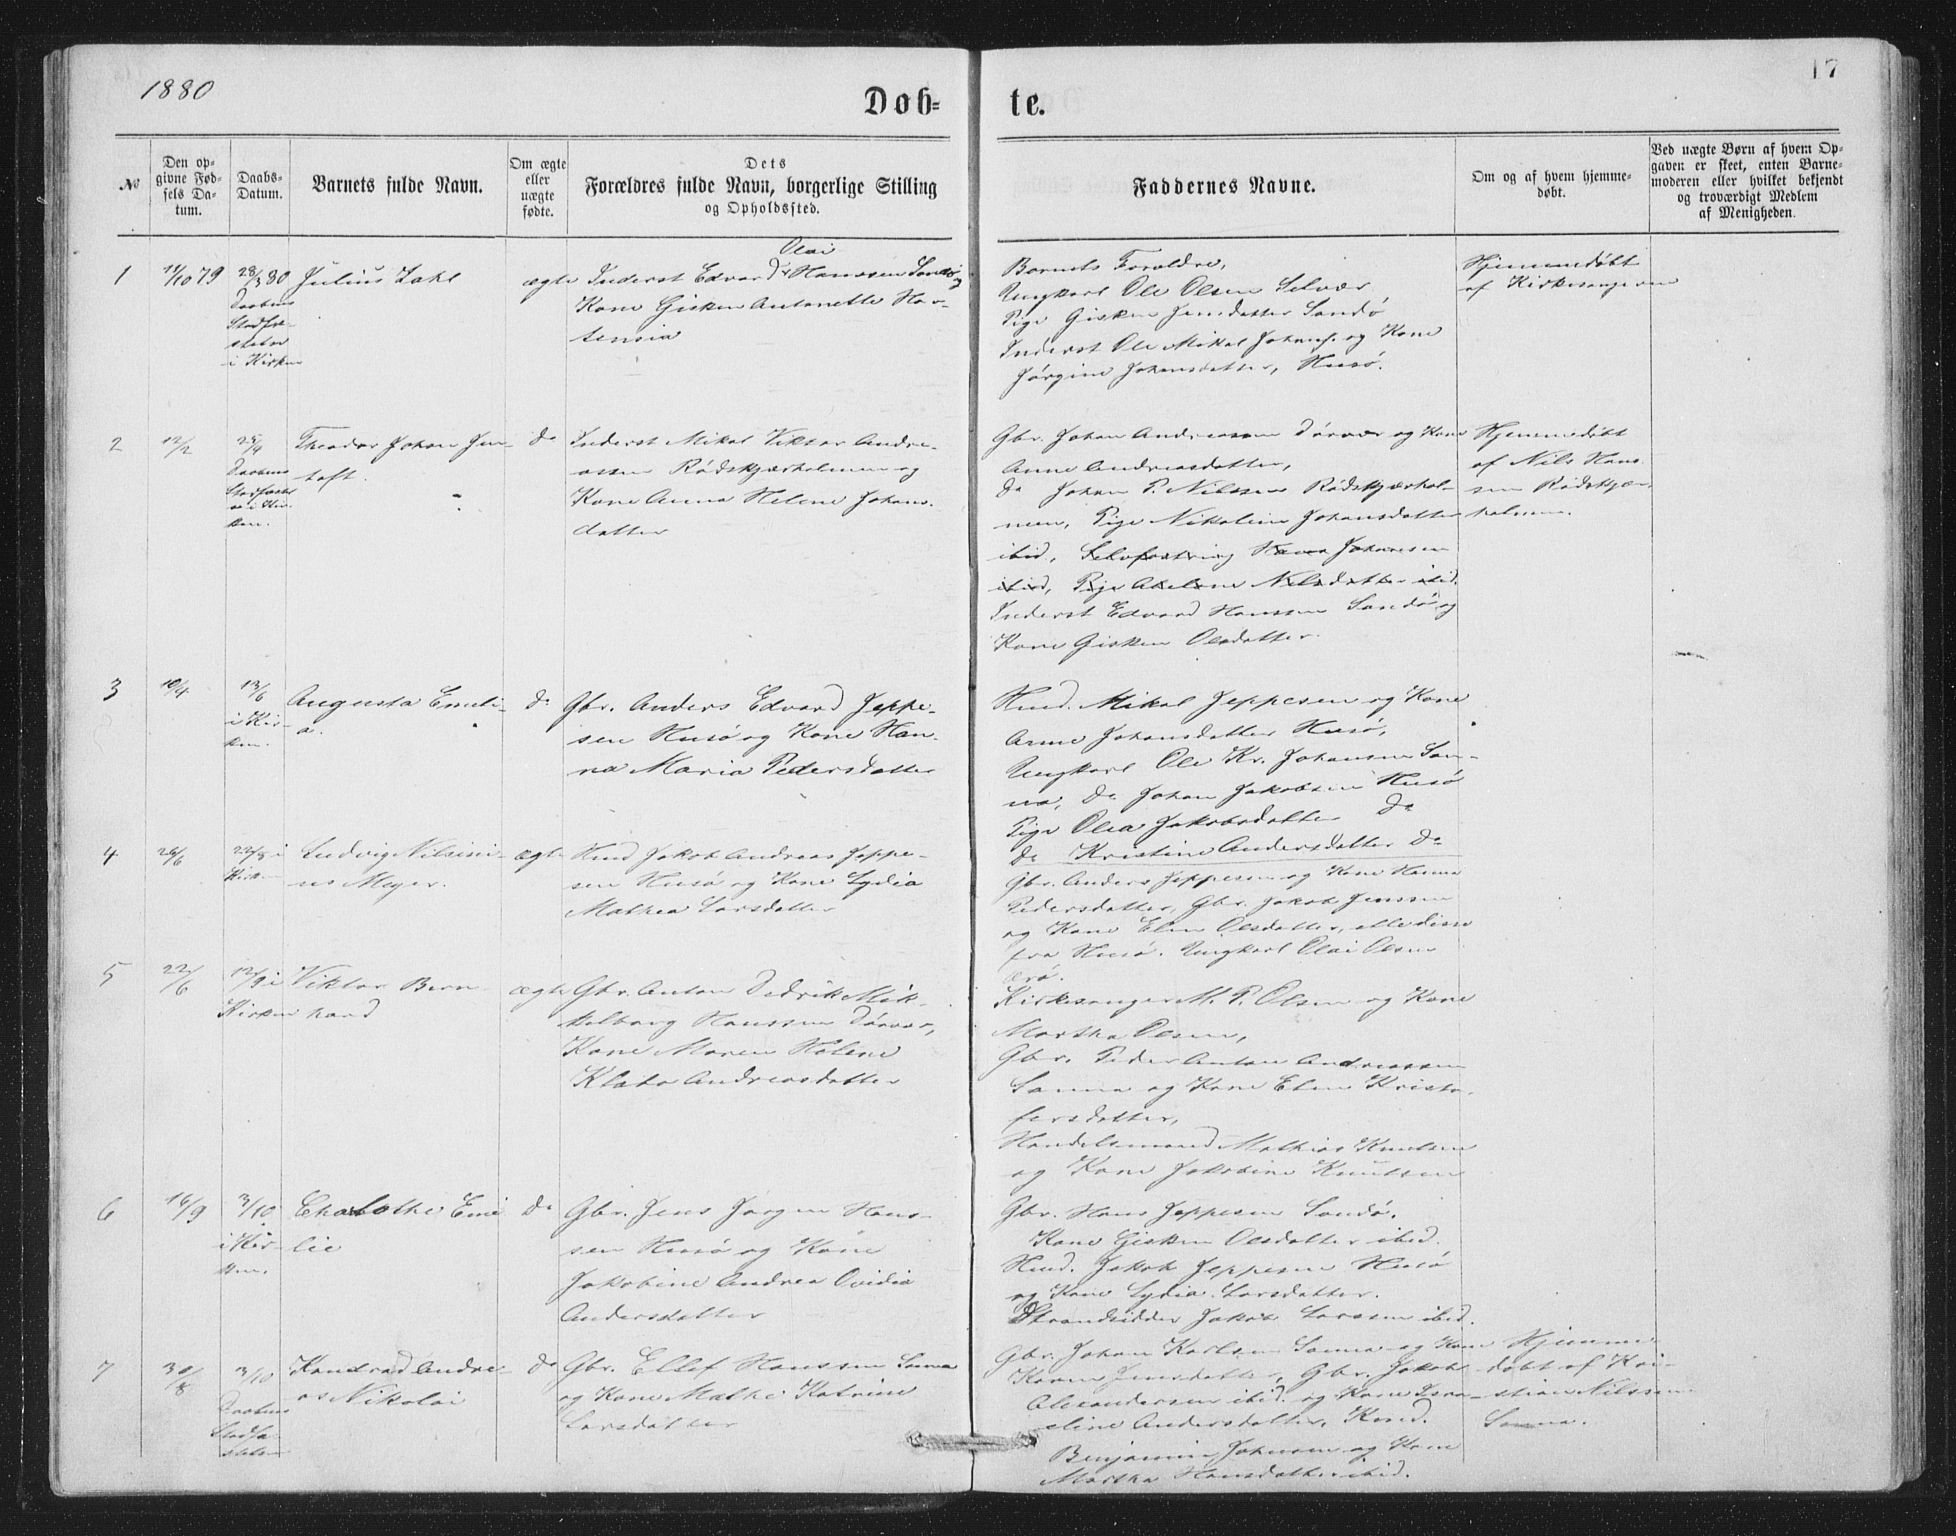 1880
17
Døb-
te.
No
Den op-
givne Fød-
sels Da-
tum.
Daabs-
Datum.
Barnets fulde Navn.
Om ægte
eller
uægte
fødte.
Dets
Forældres fulde Navn, borgerlige Stilling
og Opholdssted.
Faddernes Navne.
Om og af hvem hjemme-
døbt.
Ved uægte Børn af hvem Op-
gaven er skeet, enten Barne-
moderen eller hvilket bekjendt
og troværdigt Medlem
af Menigheden.
1
11/10 79
28/3 80
Daabens
Stadfæ-
stelse
i Kirken
Julius Zahl
ægte
Olai
Inderst Edvard Hanssen Sandø og
Kone Gisken Antonette Hor-
tensia
Barnets Forældre,
Ungkarl Ole Olsen Selvær,
Pige Gisken Jensdatter Sandø
Inderst Ole Mikal Johns. og Kone
Jørgine Johansdatter, Husø.
Hjemmedøbt
af Kirkesangeren
2
12/2
25/4
Daabens
Stadfæstel
se i Kir
ken.
Theodor Johan Jen-
toft.
do
Inderst Mikal Viktor Andre-
assen Rødskjærholmen og
Kone Anna Helene Johans.
datter
Gbr. Johan Andreassen Dørvær og Kone
Anne Andreasdatter,
do Johan P. Nilssen Rødskjærhol-
men, Pige Nikoline Johansdatter
ibid, Selvfostring Hans Johnsen
ibid, Pige Nilsdatter ibid.
Inderst Edvard Hanssen Sandø og
Kone Gisken Olsdatter.
Hjemmedøbt
af Nils Hans
sen Rødskjær
holmen.
3
10/4
13/6
i Kir-
ken.
Augusta Emili-
a.
do
Gbr. Anders Edvard Jeppe-
sen Husø og Kone Han-
na Maria Pedersdatter
Hmd. Mikal Jeppesen og Kone
Anne Johansdatter Husø,
Ungkarl Ole Kr. Johansen San-
na, do Johan Jakobsen Husø
Pige Olea Jakobsdatter do
do Kristine Andersdatter do
4
26/6
22/8 i
Kirken
Ludvig Nilsini-
us Meyer.
ægte
Hmd Jakob Andreas Jeppe-
sen Husø og Kone Lydia
Mathea Larsdatter
Gbr. Anders Jeppesen og Kone Hanna
Pedersdatter, Gbr. Jakob Jenssen
og Kone Elen Olsdatter, alle disse
fra Husø. Ungkarl Olai Olsen
5
22/6
12/9 i
Kirken
Viktor Bern
hard
ægte
Gbr. Anton Didrik Mik-
kelborg Hanssen Dørvær,
Kone Maren Helene
Andreasdatter
Kirkesanger M. P. Olsen og Kone
Martha Olsen,
Gbr. Peder Anton Andreassen
Sanna og Kone Elen Kristo-
fersdatter,
Handelsmand Mathias Knutsen
og Kone Jakobine Knutsen
6
16/9
3/10
i Kir-
ken.
Charlothe Emi
lie
do
Gbr. Jens Jørgen Hans-
sen Husø og Kone
Jakobine Andrea Ovidia
Andersdatter
Gbr. Hans Jeppesen Sandø.
Kone Gisken Olsdatter ibid.
Hmd. Jakob Jeppesen Husø
og Kone Lydia Larsdatter.
Strandsidder Jakob Larssen ibid.
7
30/8
3/10
Daabens
Stadfæ-
stelse
Kondrad Andre-
as Nikolai
do
Gbr. Ellef Hanssen Sanna
og Kone Mathe Katrine
Larsdatter
Gbr. Johan Karlsen Sanna og Kone
Karen Jensdatter, Gbr. Jakob
Alexandersen ibid. og Kone Isra-
eline Andersdatter, Hmd.
Benjamin Johnsen og Kone
Martha Hansdatter ibid.
Hjemme-
døbt af Kri-
stian Nilssen
Sanna.